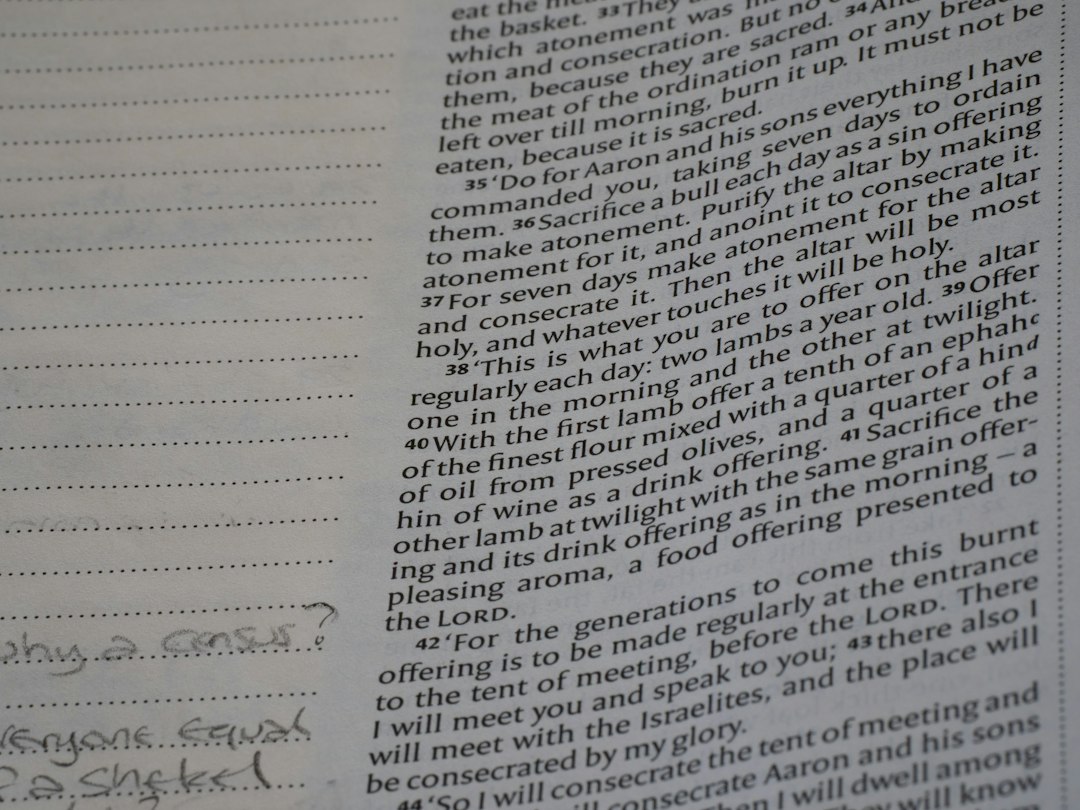 eat the
the basket. 33 They
which atonement was
tion and consecration. But no
them, because they are sacred. 34
the meat of the ordination ram or any
left over till morning, burn it up. It must not be
eaten, because it is sacred.
35 ‘Do for Aaron and his sons everything I have
commanded you, taking seven days to ordain
them. 36 Sacrifice a bull each day as a sin offering
to make atonement. Purify the altar by making
atonement for it, and anoint it to consecrate it.
37 For seven days make atonement for the altar
and consecrate it. Then the altar will be most
holy, and whatever touches it will be holy.
38 ‘This is what you are to offer on the altar
regularly each day: two lambs a year old. 39 Offer
one in the morning and the other at twilight.
40 With the first lamb offer a tenth of an ephah c
of the finest flour mixed with a quarter of a hin d
of oil from pressed olives, and a quarter of a
hin of wine as a drink offering. 41 Sacrifice the
other lamb at twilight with the same grain offer-
ing and its drink offering as in the morning – a
pleasing aroma, a food offering presented to
the LORD.
42 ‘For the generations to come this burnt
offering is to be made regularly at the entrance
to the tent of meeting, before the LORD. There
I will meet you and speak to you; 43 there also I
will meet with the Israelites, and the place will
be consecrated by my glory.
44 ‘So I will consecrate the tent of meeting and
consecrate Aaron and his sons
I will dwell among
will know
why a census?
everyone equal
a shekel